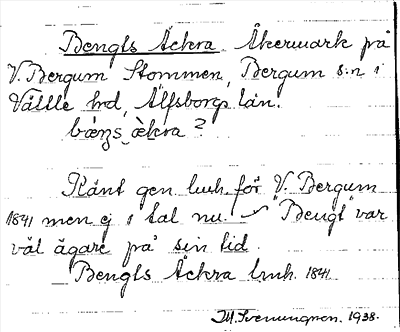 Bengts Åckra. Åkermark på
V. Bergum Stommen, Bergum s:n i
Vättle hd, Älfsborgs län.
bæŋs æ̀kra?
Känt gen. lmh. för V. Bergum
1841 men ej i tal nu. "Bengt" var
väl ägare på sin tid.
Bengts Äckra lmh. 1841.
1938.